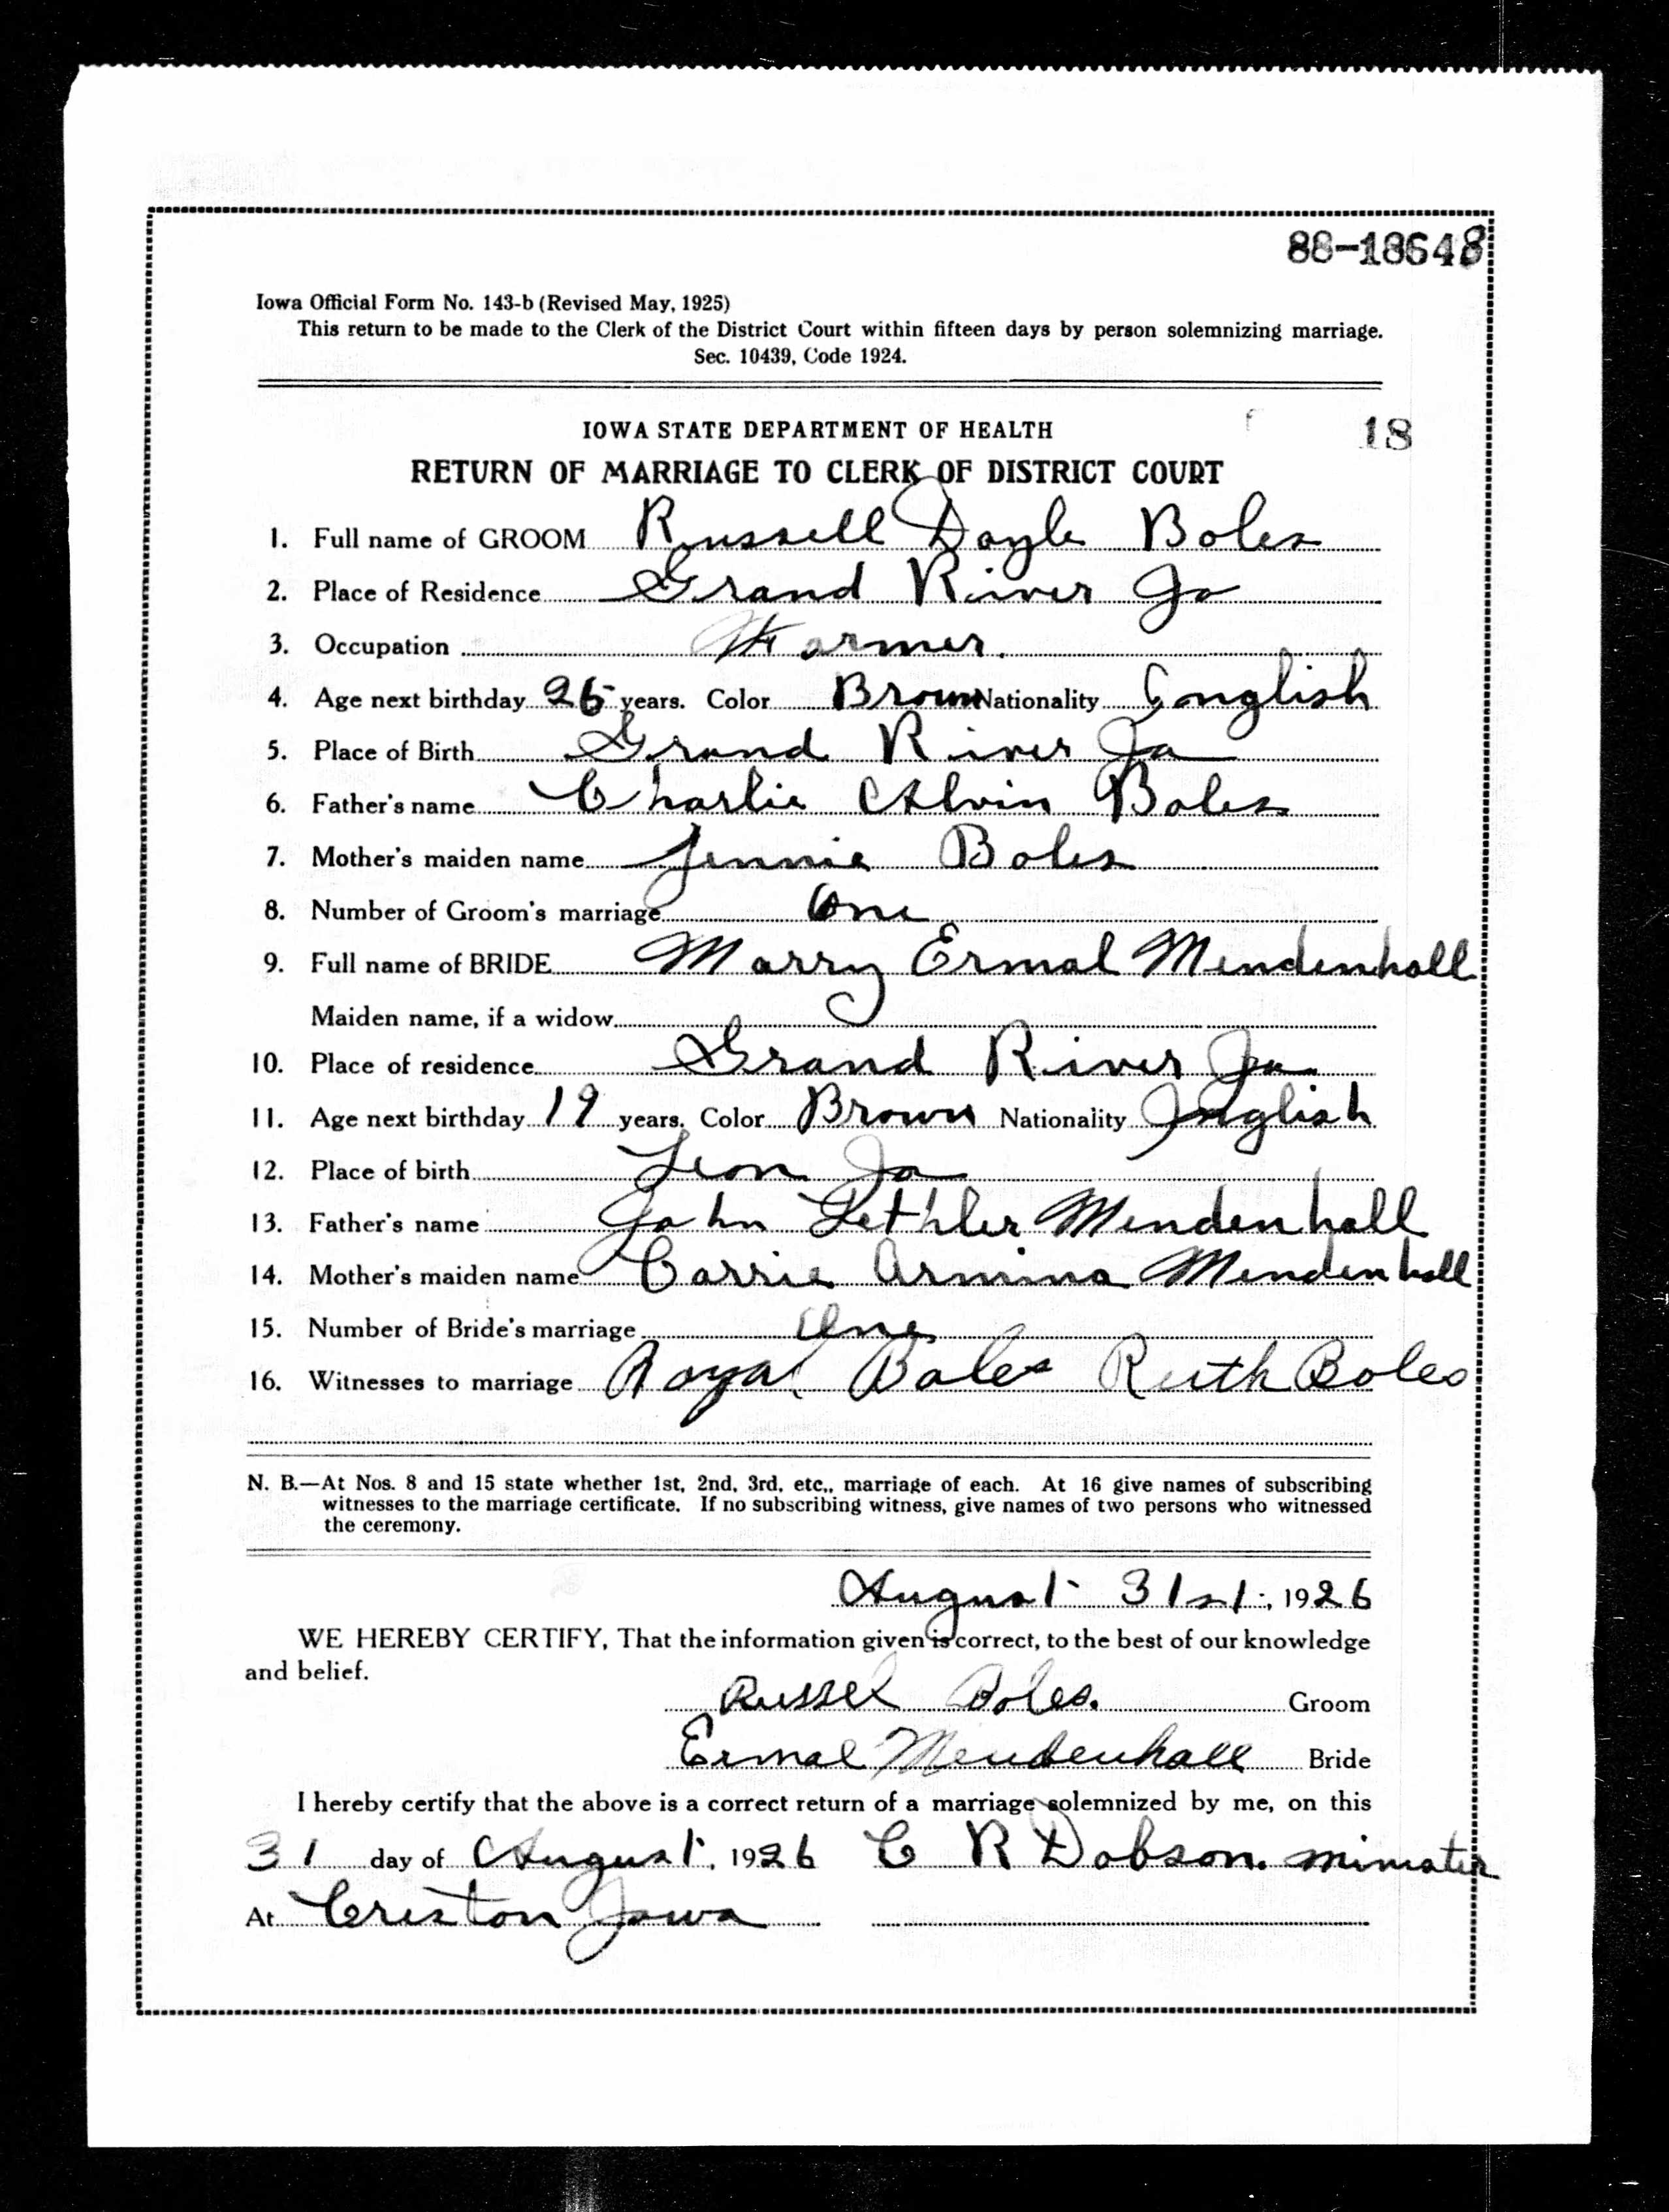 88-18648
Iowa Official Form No. 143-b (Revised May, 1925)
This return to be made to the Clerk of the District Court within fifteen days by person solemnizing marriage.
Sec. 10439, Code 1924.
IOWA STATE DEPARTMENT OF HEALTH 18
RETURN OF MARRIAGE TO CLERK OF DISTRICT COURT
1. Full name of GROOM Russell Doyle Boles
2. Place of Residence Grand River Ia
3. Occupation Farmer.
4. Age next birthday years. Color Brown Nationality English
5. Place of Birth Grand River Ia
6. Father's name Charlie Alvin Boles
7. Mother's maiden name Jennie Boles
8. Number of Groom's marriage One
9. Full name of BRIDE Marry Ermal Mendenhall
Maiden name, if a widow
10. Place of residence Grand River Ia
11. Age next birthday 19 years. Color Brown Nationality Inglish
12. Place of birth Leon Ia
13. Father's name John Mendenhall
14. Mother's maiden name Carrie Armina Mendenhall
15. Number of Bride's marriage One
16. Witnesses to marriage Royal Boles Ruth Boles
N. B.—At Nos. 8 and 15 state whether 1st, 2nd, 3rd, etc., marriage of each. At 16 give names of subscribing
witnesses to the marriage certificate. If no subscribing witness, give names of two persons who witnessed
the ceremony.
August 31st, 1926
WE HEREBY CERTIFY, That the information given is correct, to the best of our knowledge
and belief.
Russel Boles. Groom
Ermal Mendenhall Bride
I hereby certify that the above is a correct return of a marriage solemnized by me, on this
31 day of August, 1926 C R Dobson. minister
At Creston Iowa